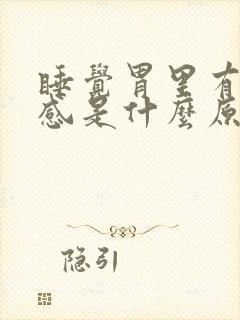 睡覺胃里有
感是什麼原
隐引